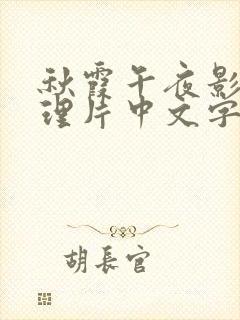 秋霞午夜影
理片中文字
胡長官